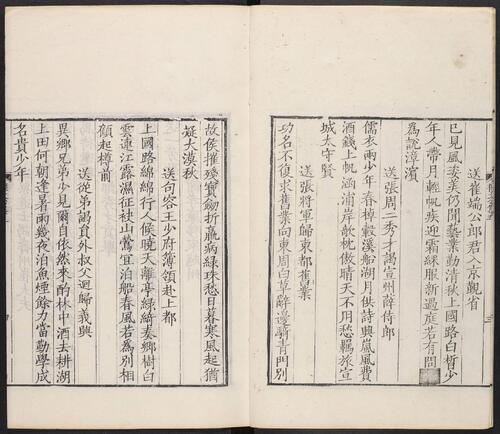 送崔端公郎君入京覲省
已見風姿美仍聞藝業勤清秋上國路白皙少
年人帶月輕帆疾迎霜綵服新過庭若有問
為說漳濱
送張周二秀才謁宣州薛侍郎
儒衣兩少年春棹縠溪船湖月供詩興嵐風費
酒錢上帆涵浦岸欹枕傲晴天不用愁羈旅宣
城太守賢
送張將軍歸東都舊業
功名不復求舊業向東周白草辭邊騎青門別
故侯摧殘寶劒折羸病綠珠愁日暮寒風起猶
疑大漠秋
送句容王少府簿領赴上都
上國路綿綿行人候曉天離亭綠綺奏鄉樹白
雲連江露濕征袂山鶯宜泊船春風若為別相
顧起樽前
送從弟謁員外叔父迴歸義興
異鄉兄弟少見爾自依然來酌林中酒去耕湖
上田何朝逢暑雨幾夜泊魚煙餘力當勤學成
名貴少年